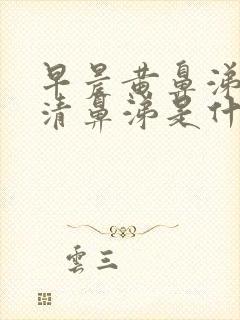 早晨黄鼻涕
清鼻涕是什
雲三